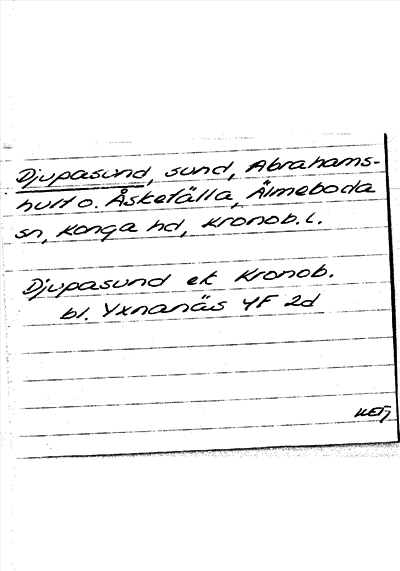 Djupasund, sund, Abrahams-
hult o. Åsketälla, Älmeboda
sn, Konga hd, Kronob. l.
Djupasund ek Kronob.
bl. Yxnanäs 4F 2d